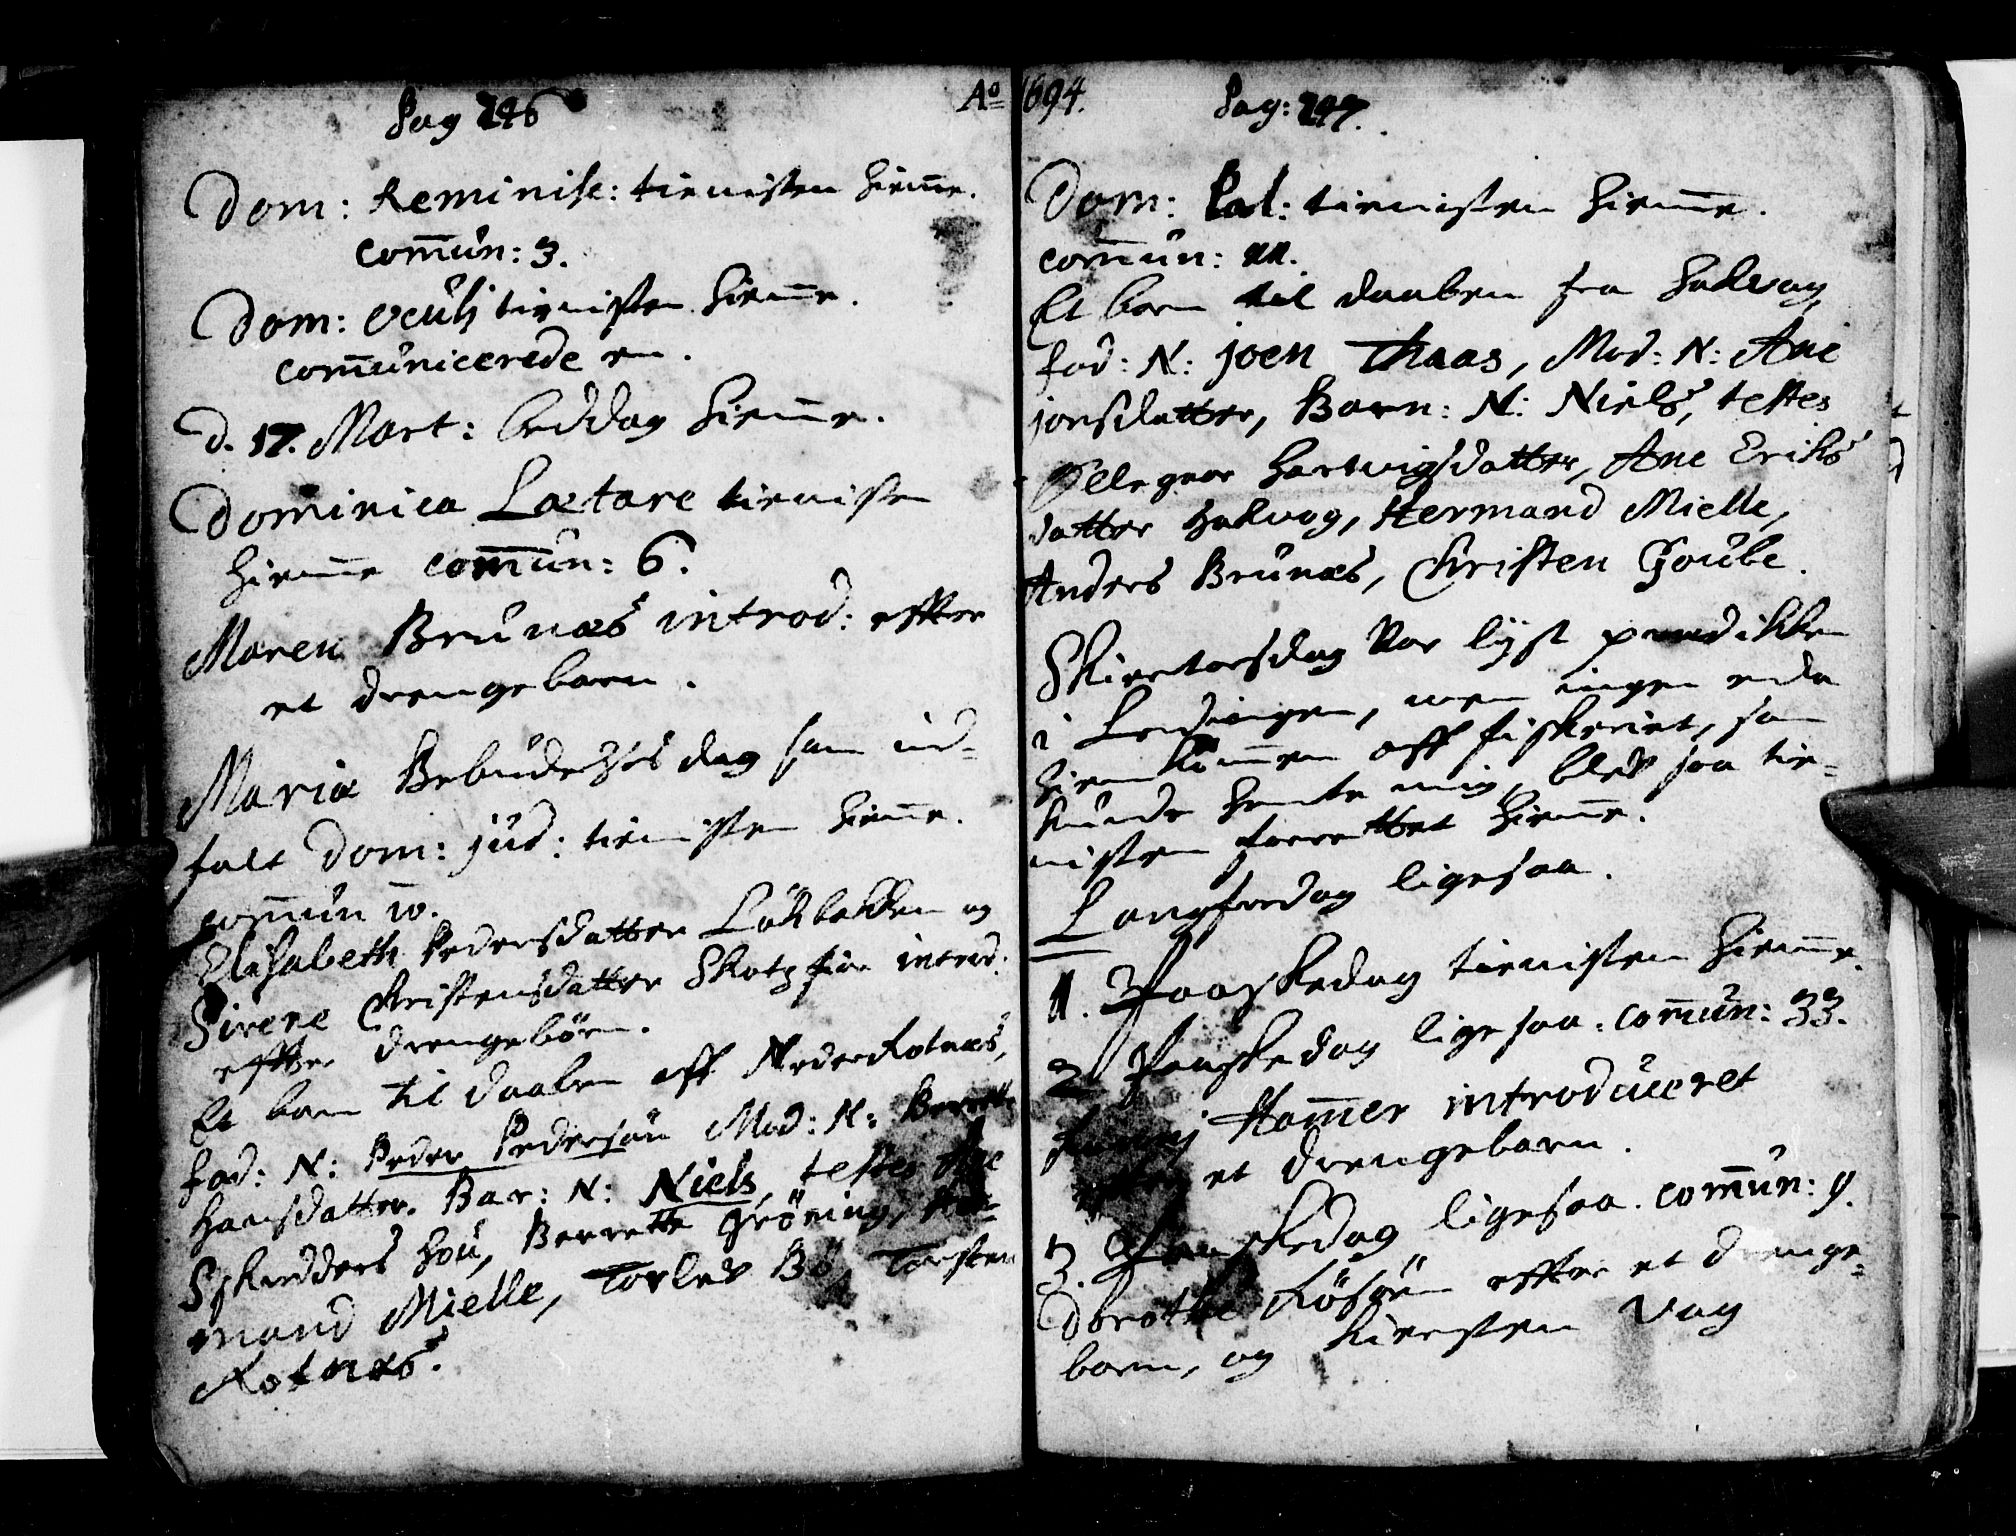 Pag 246
Dom: Reminisc: tienisten hiemme.
com̄un: 3.
Dom: Oculi tienisten hiemme.
com̄unicerede en.
D. 17. Mart: beddag hiemme.
Dominica Lætare tienisten
hiemme com̄un: 6.
Maren Brunæs introd: effter
et drengebarn.
Mariæ Bebudelses dag som ind-
falt Dom: jud: tienisten hiemme.
com̄un 10.
Elisabeth Pedersdatter Löckbekken og
Sirene Christensdatter introd:
effter drengebörn.
Et barn til daaben aff Neder Kotnæs,
fad: N: Peder Pedersön Mod: N: Berette
Hansdatter. Bar: N: Niels, testes Ane
Skredders Hou, Berrette Gröning, Her-
mand Mielle, Torlef Bö, Torsten
Kotnæs.
Ao 1694.
Pag: 247.
Dom: Pal: tienisten hiemme.
com̄un: 11.
Et barn til daaben fra Halvog,
fad: N: joen Thaas, Mod: N: Ane
jonsdatter, Barn: N: Niels, testes
Ellegeor Hartvigsdatter, Ane Eriks
datter Halvog, Hermand Mielle,
Anders Brunæs, Christen Goube.
Skiertorsdag var lyst prædikken
i Lødingen, men ingen enda
hiemkommen aff fiskeriet, som
kunde hente mig, blef saa tie-
nisten forrettet hiemme.
Langfredag ligesaa.
1. Paaskedag tienisten hiemme.
2 Paaskedag ligesaa. com̄un: 33.
Ham̄er introduceret
effter et drengebarn.
3. Paaskedag ligesaa. com̄un: 9.
Dorothe Kösöen effter et drenge-
barn, og Kiersten Vag